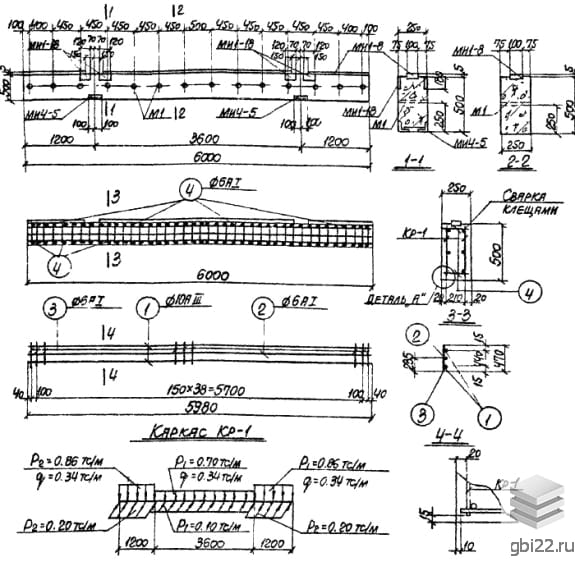 1 2
250
100 400 450 70 70 450 450 450 500 450 450 450 450 400 100
МН1-1В 120 120 120 120 МН1-8
150 150 150 150
75 100 75 МН1-8 75 100 75
500 5
МН1-1В
М1
500 250
МН4-5 М1 МН4-5
100 100 1 2 100 100
1200 3600 1200
6000
1-1 2-2
250
13 4 Ф6АI
Сварка клещами
КР-1
500
4 13
6000
Деталь "А" 20 210 20
4
3-3
3 Ф6АI 14 1 Ф10АIII 2 Ф6АI
2 15
235 440 470
15
14
40 100 150х38=5700 100 40
5980
3 1
Каркас КР-1
4-4
20
P2=0.86 тс/м P1=0.70 тс/м P1=0.86 тс/м
q=0.34 тс/м q=0.34 тс/м q=0.34 тс/м
КР-1
P2=0.20 тс/м P1=0.10 тс/м P2=0.20 тс/м
15
1200 3600 1200
10
gbi22.ru